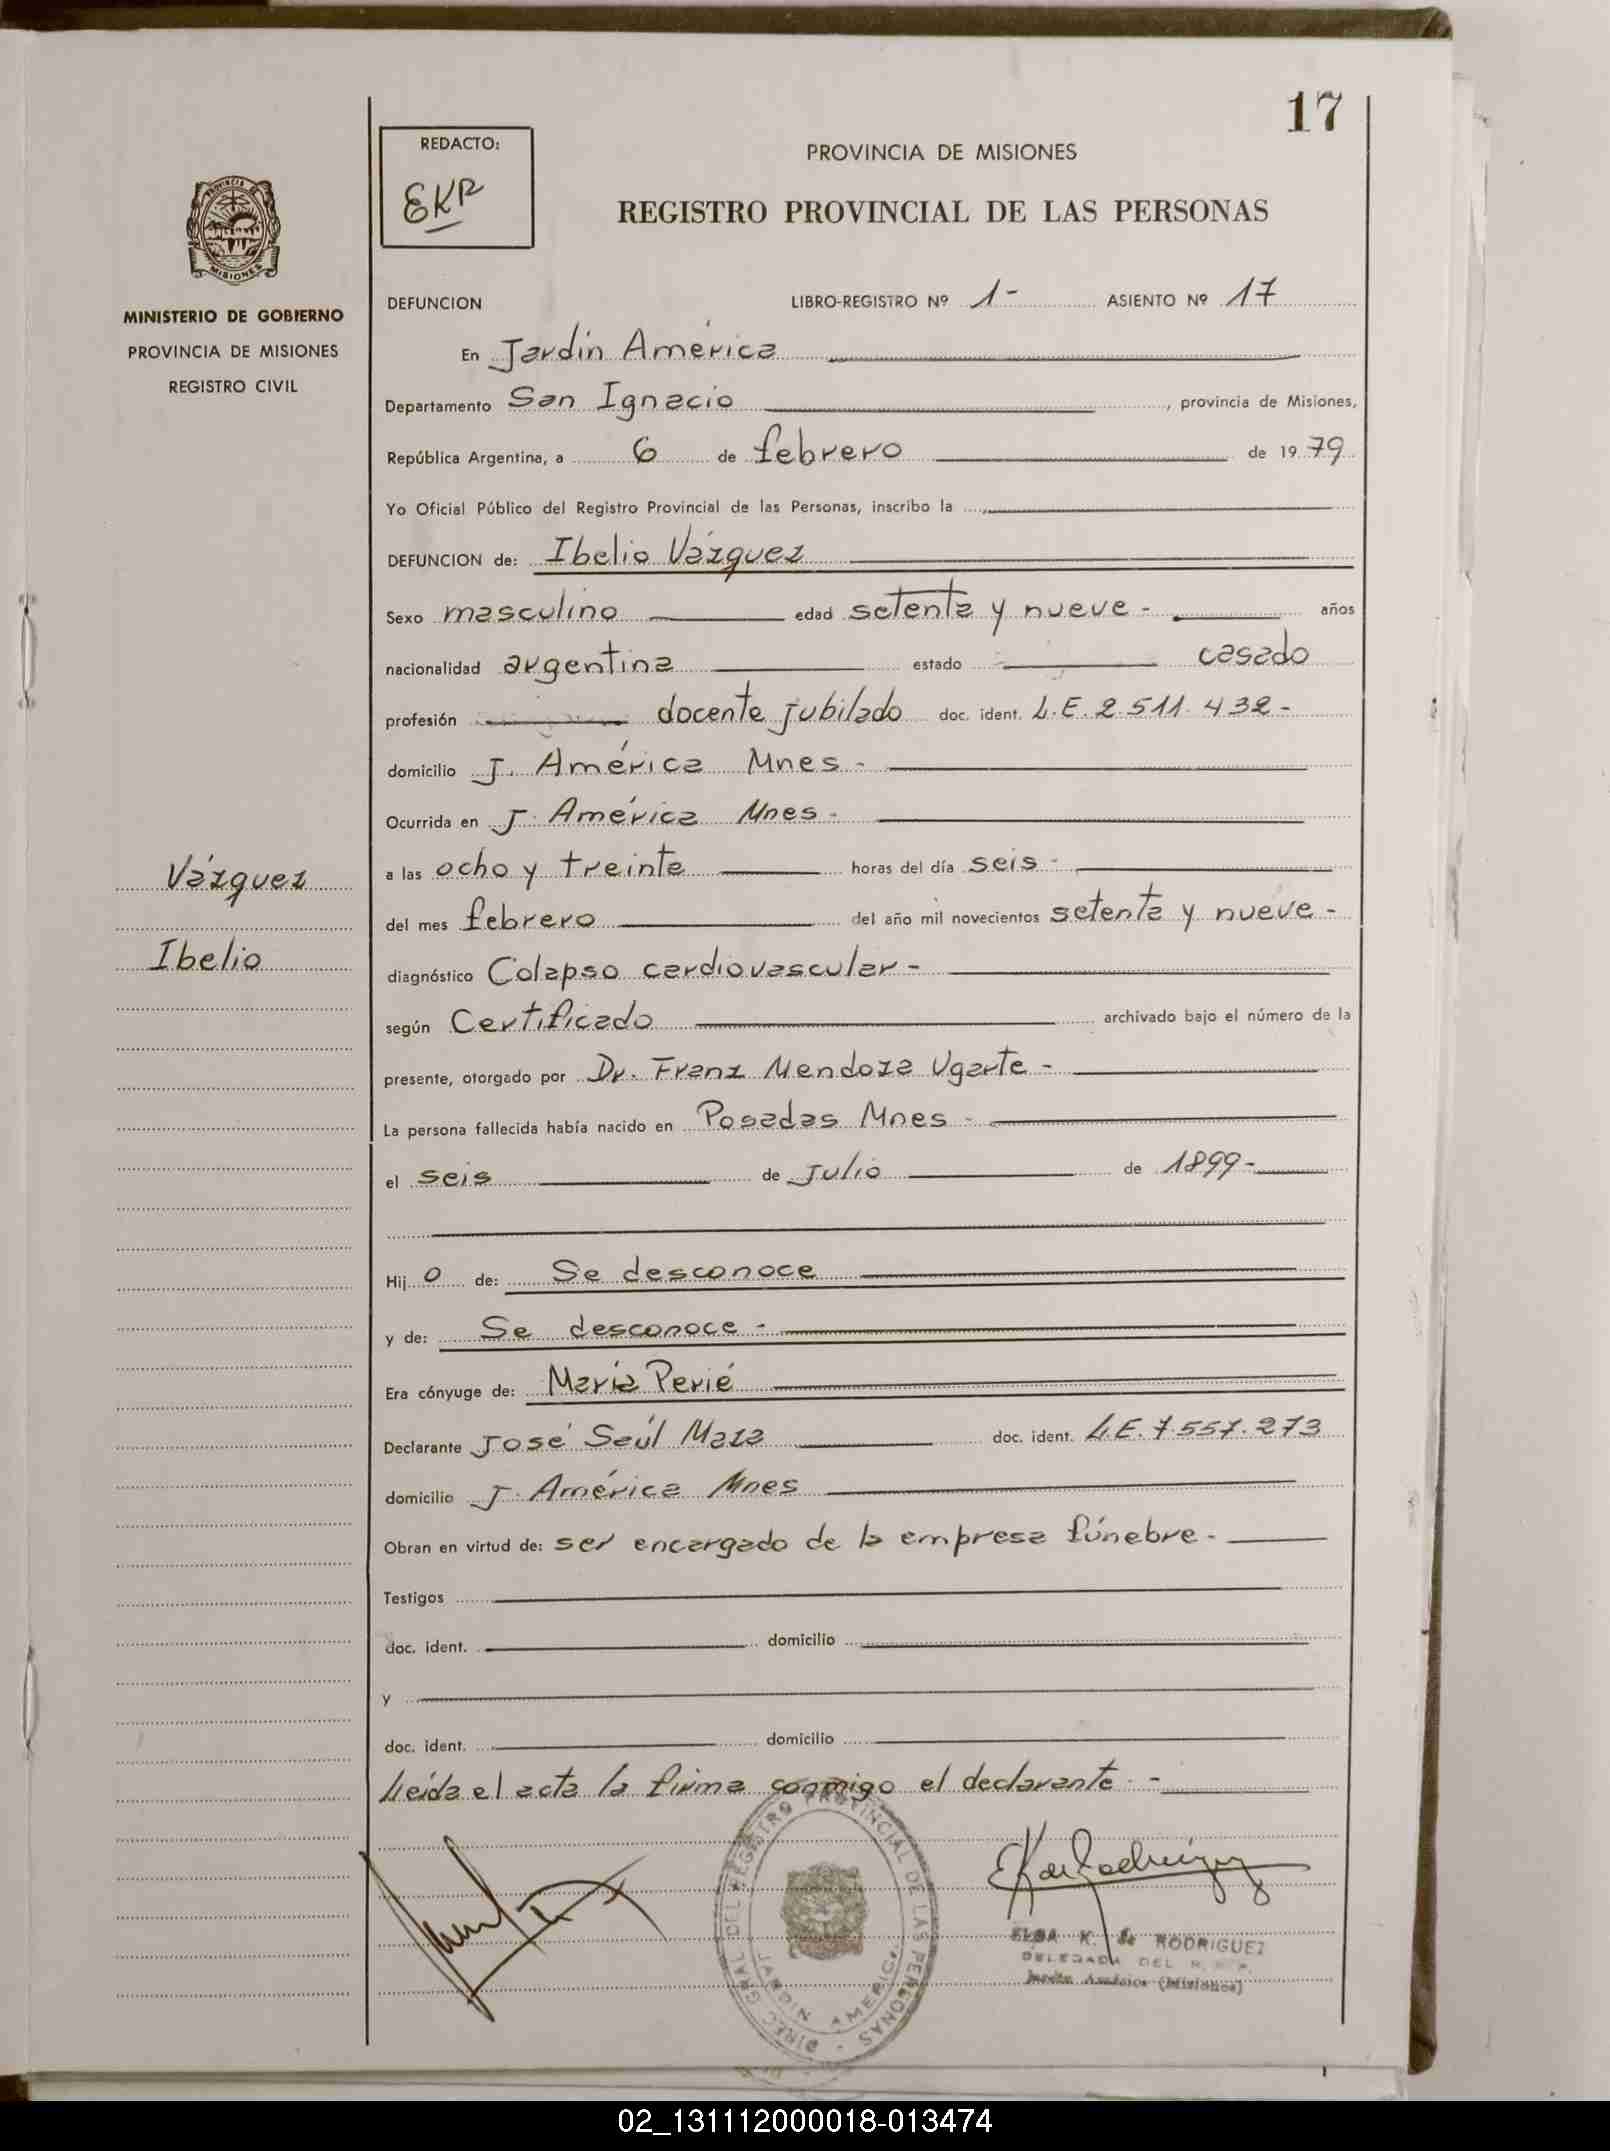 17
REDACTO:
EKR
PROVINCIA DE MISIONES
REGISTRO PROVINCIAL DE LAS PERSONAS
MISIONES
MINISTERIO DE GOBIERNO
PROVINCIA DE MISIONES
REGISTRO CIVIL
DEFUNCION LIBRO-REGISTRO Nº 1- ASIENTO Nº 17
En Jardín América
Departamento San Ignacio, provincia de Misiones,
República Argentina, a 6 de febrero de 1979
Yo Oficial Público del Registro Provincial de las Personas, inscribo la
DEFUNCION de: Ibelio Vázquez
Sexo masculino edad setenta y nueve - años
nacionalidad argentina estado casado
profesión docente jubilado doc. ident. L.E. 2.511.432-
domicilio J. América Mnes-
Ocurrida en J. América Mnes-
Vázquez
a las ocho y treinta horas del día seis-
del mes febrero del año mil novecientos setenta y nueve-
Ibelio
diagnóstico Colapso cardiovascular-
según Certificado archivado bajo el número de la
presente, otorgado por Dr. Franz Mendoza Ugarte-
La persona fallecida había nacido en Posadas Mnes-
el seis de Julio de 1899-
Hijo de: Se desconoce
y de: Se desconoce-
Era cónyuge de: María Perié
Declarante José Saúl Maza doc. ident. L.E. 7.557.273
domicilio J. América Mnes
Obran en virtud de: ser encargado de la empresa fúnebre-
Testigos
doc. ident. domicilio
y
doc. ident. domicilio
Leída el acta la firma conmigo el declarante.-
DIREC. GRAL. DEL REGISTRO PROVINCIAL DE LAS PERSONAS
JARDIN AMERICA
EKdeRodríguez
ELBA K. de RODRIGUEZ
DELEGADA DEL R. P. P.
Jardín América (Misiones)
02_131112000018-013474